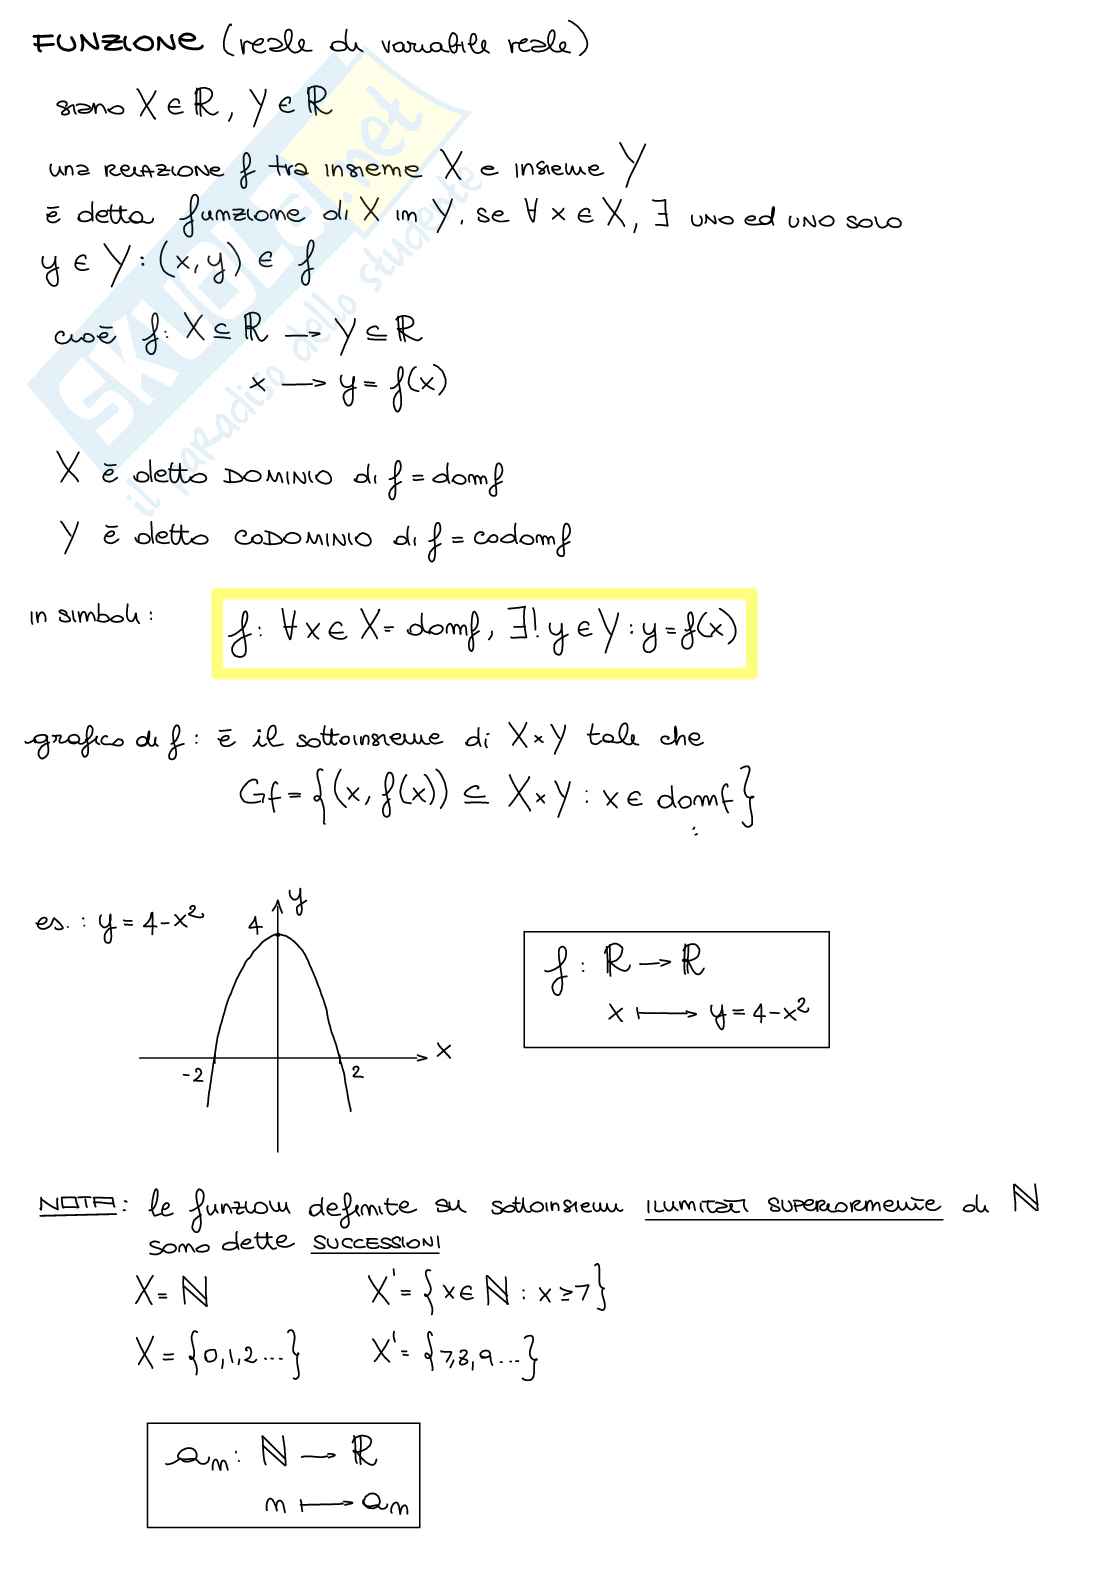 FUNZIONE (reale di variabile reale)
siano X ∈ ℝ, Y ∈ ℝ
una RELAZIONE f tra insieme X e insieme Y
ē detta funzione di X in Y, se ∀ x ∈ X, ∃ UNO ed UNO SOLO
y ∈ Y : (x, y) ∈ f
cioē f: X ⊆ ℝ → Y ⊆ ℝ
x → y = f(x)
X ē detto DOMINIO di f = domf
Y ē detto CODOMINIO di f = codomf
in simboli :
f: ∀ x ∈ X = domf, ∃! y ∈ Y : y = f(x)
grafico di f : ē il sottoinsieme di X × Y tale che
Gf = {(x, f(x)) ⊆ X × Y : x ∈ domf}
es. : y = 4 - x²
y
4
x
-2
2
f : ℝ → ℝ
x ↦ y = 4 - x²
NOTA : le funzioni definite su sottoinsiemi ILLIMITATI SUPERIORMENTE di ℕ
sono dette SUCCESSIONI
X = ℕ X' = {x ∈ ℕ : x ≥ 7}
X = {0, 1, 2 ...} X' = {7, 8, 9 ...}
an : ℕ → ℝ
n ↦ an
SKUOLA.net
il paradiso dello studente